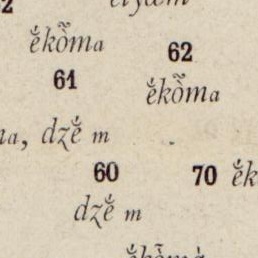 ĕ́kõ̀ma
62
61
ĕ́kõ̀ma
dzĕ́ m
60 70 ĕ́k
dzĕ́ m